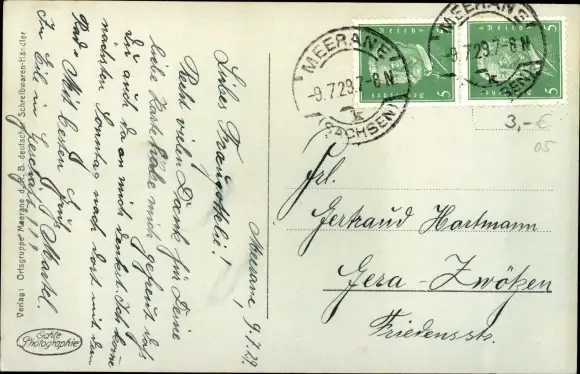 Meerane, 9.7.29.
Liebes Fraugottelei!
Recht vielen Dank für Deine
liebe Karte. Habe mich gefreut daß
Du auch da an mich denkst. Ich komme
nächsten Sonntag nach dort mit dem
Rad. Mit besten Grüß
In Eil im Geschäft!!!
Verlag: Ortsgruppe Meerane d. R. B. deutscher Schreibwaren-Händler
Echte
Photographie
MEERANE
-9.7.29.7-8 N
k
(SACHSEN)
MEERANE
-9.7.29.7-8 N
k
(SACHSEN)
5
5
5
5
3,- €
05
Frl.
Gertraud Hartmann
Gera-Zwötzen
Friedensstr.